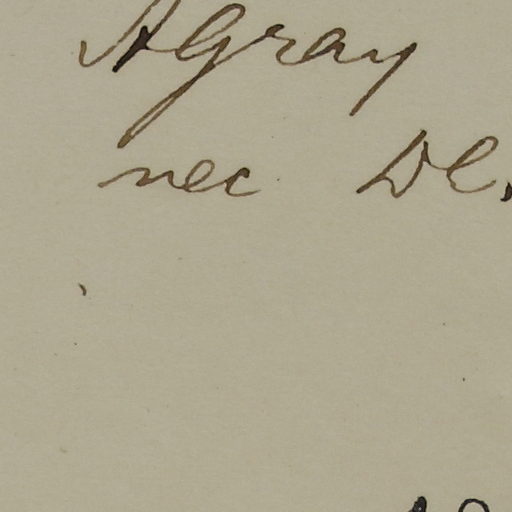 A Gray
nec DC.